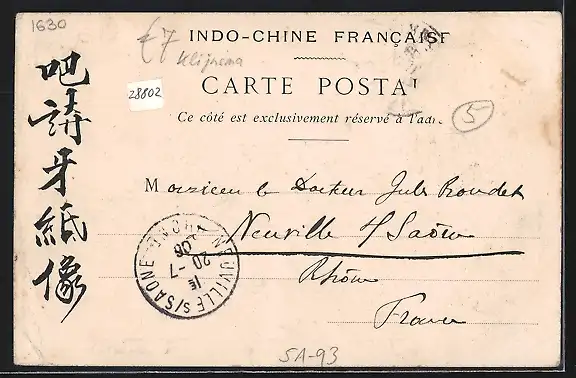 1630
£7
Klijnsma
28802
INDO-CHINE FRANÇAISE
CARTE POSTA
Ce côté est exclusivement réservé à l'adr
5
吧請牙紙像
Monsieur le Docteur Jules
Neuville s/ Saône
Rhône
France
NEUVILLE S/SAONE RHONE
1E
20 -7
08
SA-93